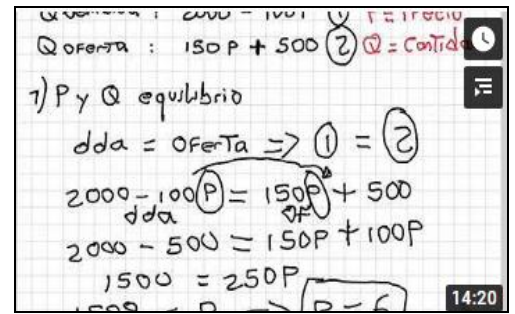 2000 - 100P ① P = Precio
Q oferta : 150P + 500 ② Q = Cantida
1) P y Q equilibrio
dda = oferta => ① = ②
2000 - 100P = 150P + 500
dda OF
2000 - 500 = 150P + 100P
1500 = 250P
1500 = P => P = 6
14:20